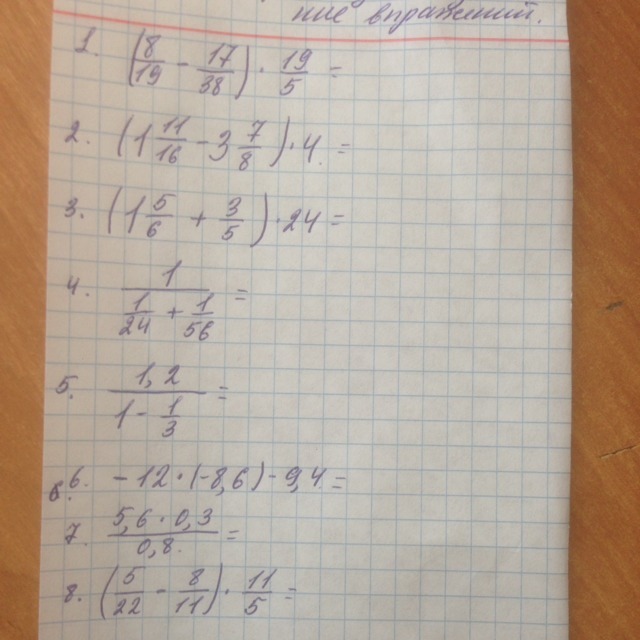 ние выражений.
1. (8/19 - 17/38) · 19/5 =
2. (1 11/16 - 3 7/8) · 4 =
3. (1 5/6 + 3/5) · 24 =
4. 1/(1/24 + 1/56) =
5. 1,2/(1 - 1/3) =
6. -12 · (-8,6) - 9,4 =
7. 5,6 · 0,3/0,8 =
8. (5/22 - 8/11) · 11/5 =